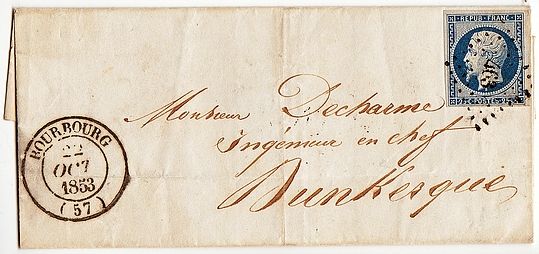 REPUB. FRANC.
Monsieur Decharme
Ingénieur en chef
Dunkerque
BOURBOURG
22
OCT
1853
(57)